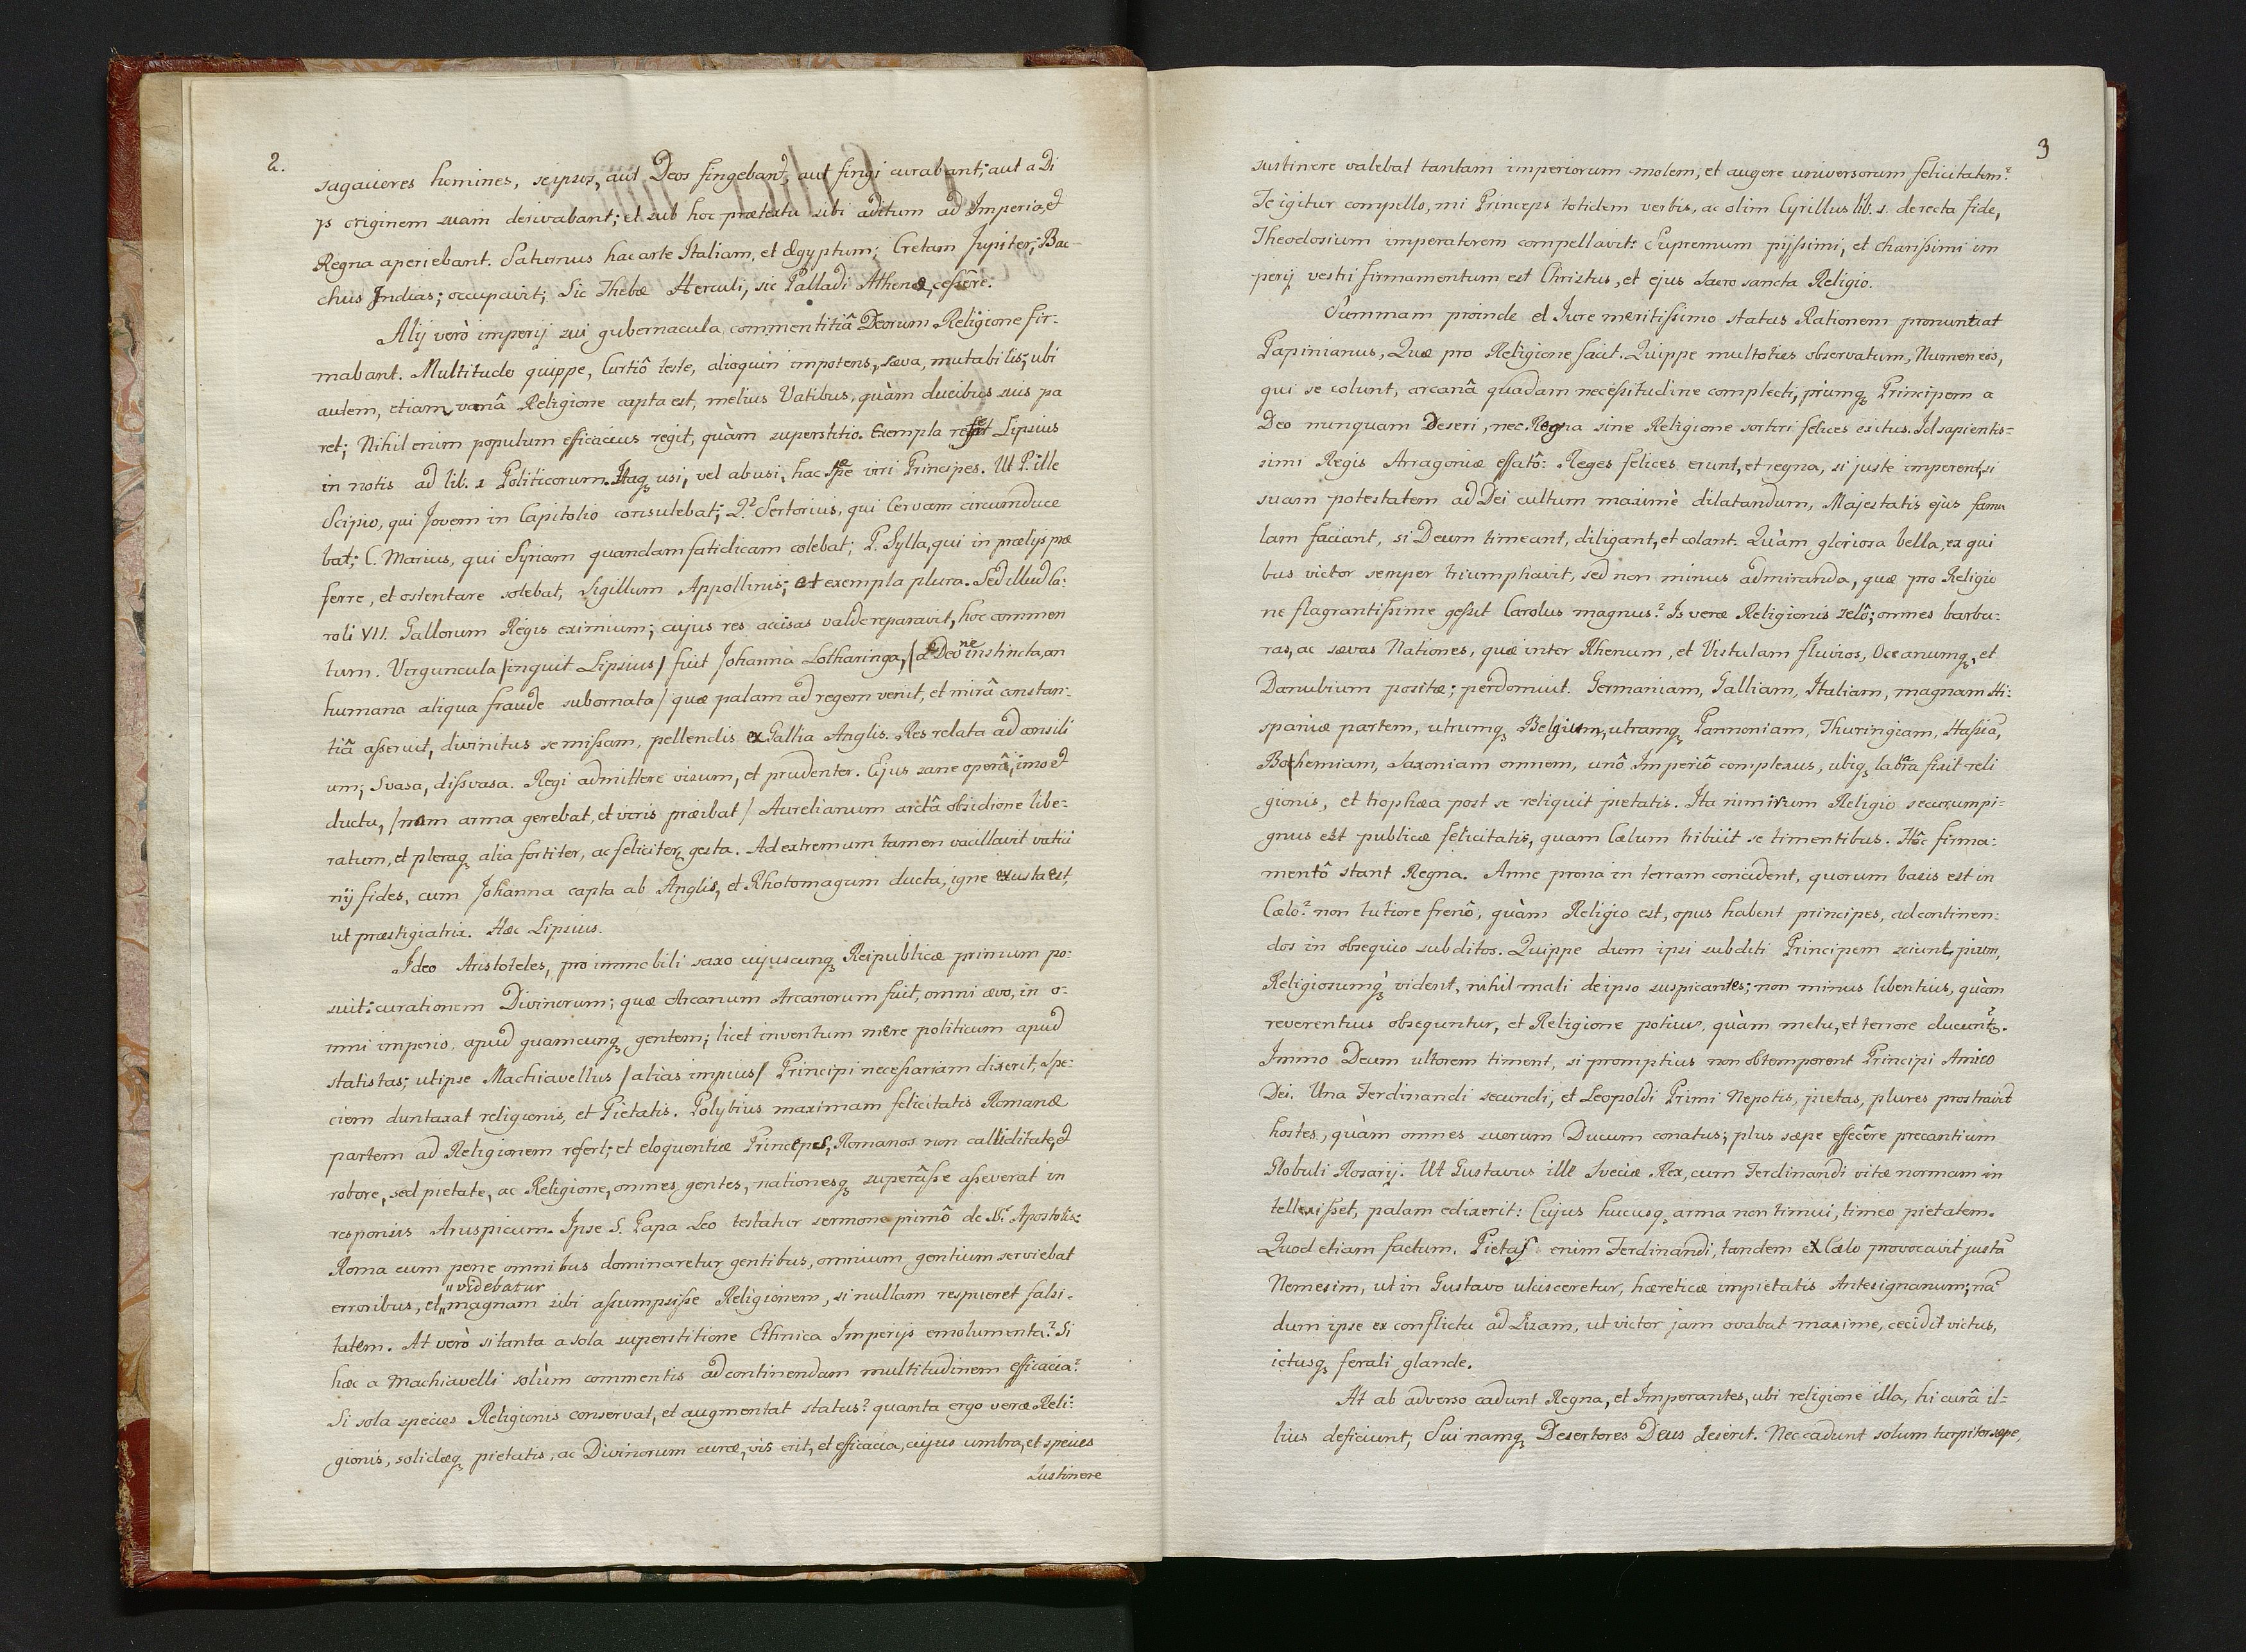 2.
sagaciores homines, seipsos, aut Deos fingebant, aut fingi curabant; aut a Di
ys originem suam derivabant; et sub hoc prætextu sibi aditum ad Imperia, et
Regna aperiebant. Saturnus hac arte Italiam, et Ægyptum; Cretam Jupiter; Bac-
chus Indias; occupavit; Sic Thebæ Herculi, sic Palladi Athenæ, cessêre.
Alij verò imperij sui gubernacula commentitiâ Deorum Religione fir-
mabant. Multitudo quippe, Curtiô teste, alioquin impotens, sæva, mutabilis; ubi
autem, etiam vanâ Religione capta est, melius Vatibus, quàm ducibus suis pa
ret; Nihil enim populum efficacius regit, quàm superstitio. Exempla refert Lipsius
in notis ad lib. 1 Politicorum. Itaq; usi, vel abusi, hac spe viri Principes. Ut P. ille
Scipio, qui Jovem in Capitolio consulebat; Q? Sertorius, qui Cervam circumduce
bat; C. Marius, qui Syriam quandam fatidicam colebat; P. Sylla, qui in prælijs præ
ferre, et ostentare solebat, Sigillum Appollinis; et exempla plura. Sed illud Ca:
roli VII. Gallorum Regis eximium; cujus res accisas valde reparavit, hoc commen
tum. Virguncula /inquit Lipsius/ fuit Johanna Lotharinga, /a Deo ne instincta, an
humana aliqua fraude subornata/ quæ palam ad regem venit, et mirâ constan-
tiâ asseruit, divinitus se missam, pellendis ex Gallia Anglis. Res relata ad consili
um; Svasa, dissvasa. Regi admittere visum, et prudenter. Ejus sane operâ, imo et
ductu, /nam arma gerebat, et viris præibat/ Aurelianum arctâ obsidione libe:
ratum, et pleraq; alia fortiter, ac feliciter gesta. Ad extremum tamen vacillavit vatici
nij fides, cum Johanna capta ab Anglis, et Rhotomagum ducta, igne exusta est,
ut præstigiatrix. Hæc Lipsius.
Ideo Aristoteles, pro immobili saxo cujuscunq; Reipublicæ primum po:
suit: curationem Divinorum; quæ Arcanum Arcanorum fuit, omni ævo, in o-
mni imperio, apud quamcunq; gentem; licet inventum mere politicum apud
statistas; ut ipse Machiavellus /aliàs impius/ Principi necessariam dixerit, spe:
ciem duntaxat religionis, et Pietatis. Polybius maximam felicitatis Romanæ
partem ad Religionem refert; et eloquentiæ Princeps, Romanos non calliditate, et
robore, sed pietate, ac Religione, omnes gentes, nationesq; superâsse asseverat in
responsis Aruspicum. Ipse S. Papa Leo testatur sermone primô de SS. Apostolis:
Roma cum pene omnibus dominaretur gentibus, omnium gentium serviebat
„videbatur
erroribus, et „magnam sibi assumpsisse Religionem, si nullam respueret falsi-
tatem. At verò si tanta a sola superstitione Ethnica Imperijs emolumenta? Si
hæc a Machiavelli solùm commentis ad continendam multitudinem efficacia?
Si sola species Religionis conservat, et augmentat status? quanta ergo veræ Reli:
gionis, solidæq; pietatis, ac Divinorum curæ, vis erit, et efficacia, cujus umbra, et species
sustinere
3
sustinere valebat tantam imperiorum molem, et augere universorum felicitatem?
Te igitur compello, mi Princeps totidem verbis, ac olim Cyrillus lib. 1. de recta fide,
Theodosium imperatorem compellavit: Supremum pijssimi, et charissimi im
perij vestri firmamentum est Christus, et ejus Sacro sancta Religio.
Summam proinde et Jure meritissimo status Rationem pronuntiat
Papinianus, Quæ pro Religione facit. Quippe multoties observatum, Numen eos,
qui se colunt, arcanâ quadam necessitudine complecti, piumq; Principem a
Deo nunquam Deseri, nec Regna sine Religione sortiri felices exitus. Id sapientis-
simi Regis Arragoniæ effatô: Reges felices erunt, et regna, si juste imperent, si
suam potestatem ad Dei cultum maximè dilatandum, Majestatis ejus famu
lam faciant, si Deum timeant, diligant, et colant. Quàm gloriosa bella, ex qui
bus victor semper triumphavit, sed non minus admiranda, quæ pro Religio
ne flagrantissime gessit Carolus magnus? Is veræ Religionis zelô; omnes barba:
ras, ac sævas Nationes, quæ inter Rhenum, et Vistulam fluvios, Oceanumq; et
Danubium positæ; perdomuit. Germaniam, Galliam, Italiam, magnam Hi:
spaniæ partem, utrumq; Belgium, utramq; Pannoniam, Thuringiam, Hassiã,
Bohemiam, Saxoniam omnem, unô Imperiô complexus, ubiq; labara fixit reli
gionis, et trophæa post se reliquit pietatis. Ita nimirum Religio securum pi-
gnus est publicæ felicitatis, quam Cælum tribuit se timentibus. Hôc firma:
mentô stant Regna. Anne prona in terram concident, quorum basis est in
Cælo? non tutiore frenô, quàm Religio est, opus habent principes, ad continen:
dos in obsequio subditos. Quippe dum ipsi subditi Principem sciunt pium,
Religiosumq; vident, nihil mali de ipso suspicantes; non minus libentius, quàm
reverentius obsequntur, et Religione potius, quàm metu, et terrore ducunt?.
Immo Deum ultorem timent, si promptius non obtemperent Principi Amico
Dei. Una Ferdinandi secundi, et Leopoldi Primi Nepotis, pietas, plures prostravit
hostes, quàm omnes suorum Ducum conatus; plus sæpe effecêre precantium
Globuli Rosarij. Ut Gustavus ille Sveciæ Rex, cum Ferdinandi vitæ normam in
tellexisset, palam edixerit: Cujus hucusq; arma non timui, timeo pietatem.
Quod etiam factum. Pietas enim Ferdinandi, tandem ex Cælo provocavit justã
Nemesim, ut in Gustavo ulcisceretur, hæreticæ impietatis Antesignanum; nã
dum ipse ex conflictu ad Lizam, ut victor jam ovabat maxime, cecidit victus,
ictusq; ferali glande.
At ab adverso cadunt Regna, et Imperantes, ubi religione illa, hi curâ il-
lius deficiunt, Sui namq; Desertores Deus deserit. Nec cadunt solum turpiter sæpe,